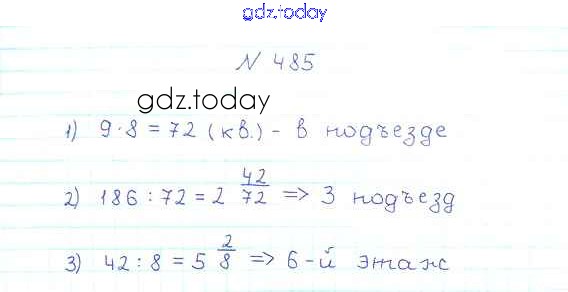 gdz.today
N 485
gdz.today
1) 9·8 = 72 (кв.) - в подъезде
2) 186 : 72 = 2 42/72 => 3 подъезд
3) 42 : 8 = 5 2/8 => 6-й этаж